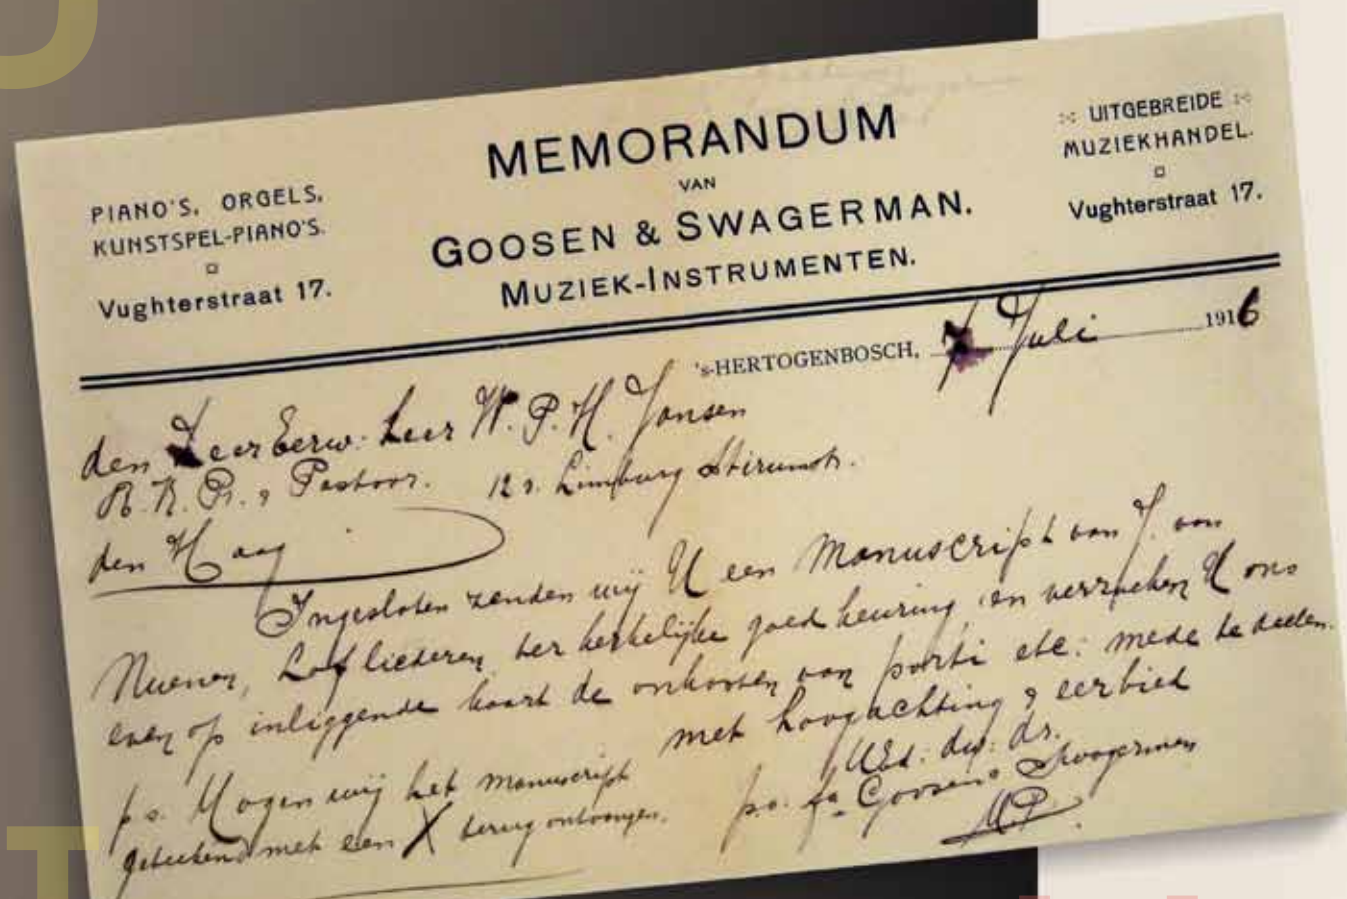 PIANO'S, ORGELS,
KUNSTSPEL-PIANO'S.
Vughterstraat 17.
MEMORANDUM
VAN
GOOSEN & SWAGERMAN.
MUZIEK-INSTRUMENTEN.
UITGEBREIDE
MUZIEKHANDEL.
Vughterstraat 17.
's-HERTOGENBOSCH, Juli 1916
den Zeer Eerw: Heer W. P. H. Jansen
R. K. Pr. & Pastoor. 12 v. Limburg Stirumstr.
den Haag
Ingesloten zenden wij U een Manuscript van J. van
Nuenen, Lofliederen, ter kerkelijke goedkeuring, en verzoeken U ons
even op inliggende kaart de onkosten van porti etc: mede te deelen.
met hoogachting & eerbied
UEd: dw: dr.
p.o. fa Goosen & Swagerman
p s. Mogen wij het manuscript
geteekend met een X terug ontvangen.